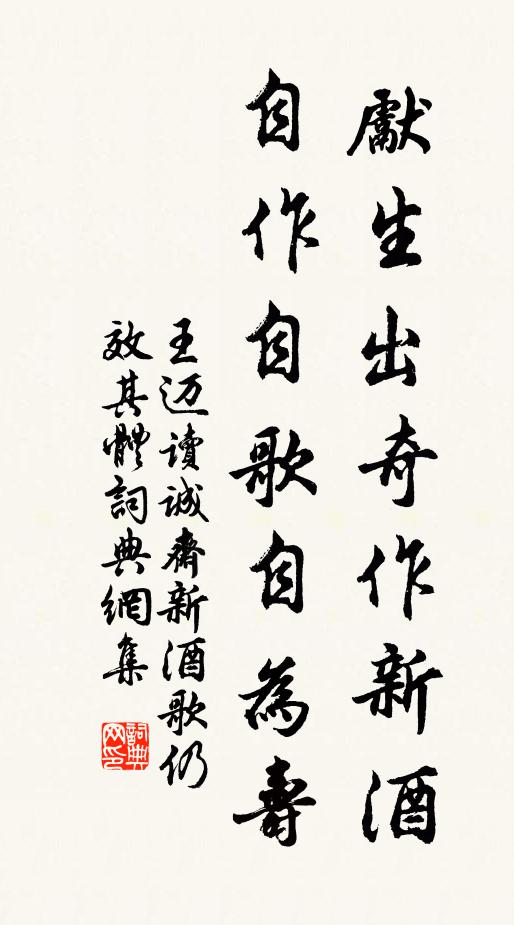 獻生出奇作新酒
自作自歌自為壽
王迈讀誠齋新酒歌仍
效其體詞典網集
詞典網印